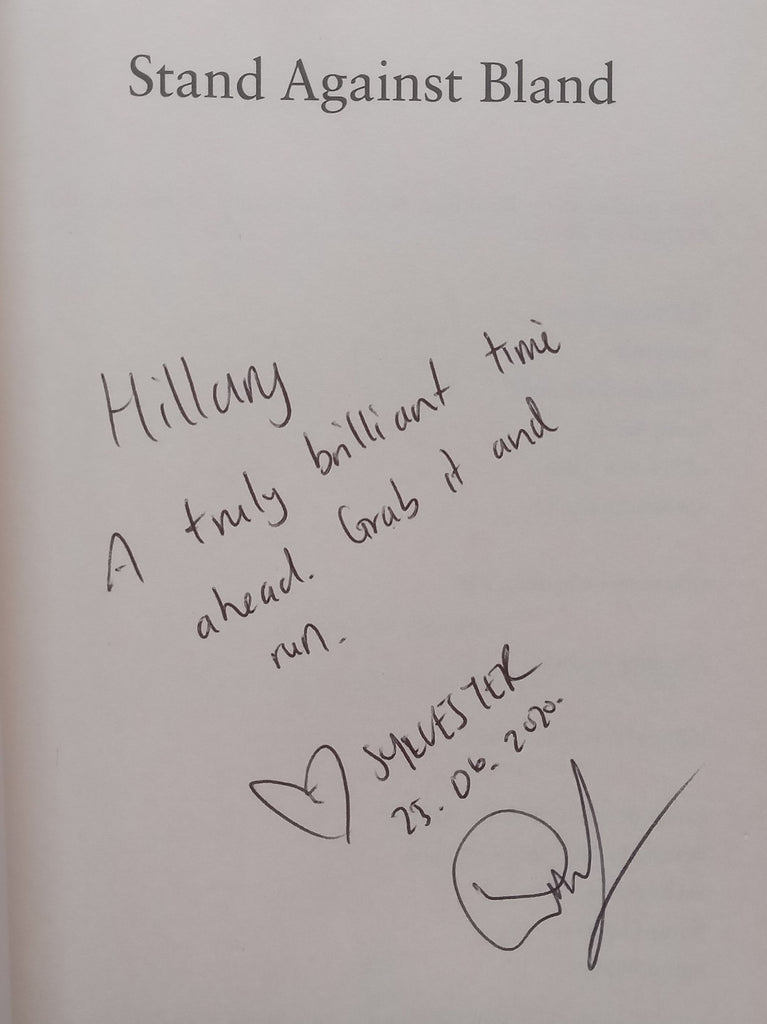 Stand Against Bland
Hillary
A truly brilliant time
ahead. Grab it and
run.
SYLVESTER
25.06.2020.